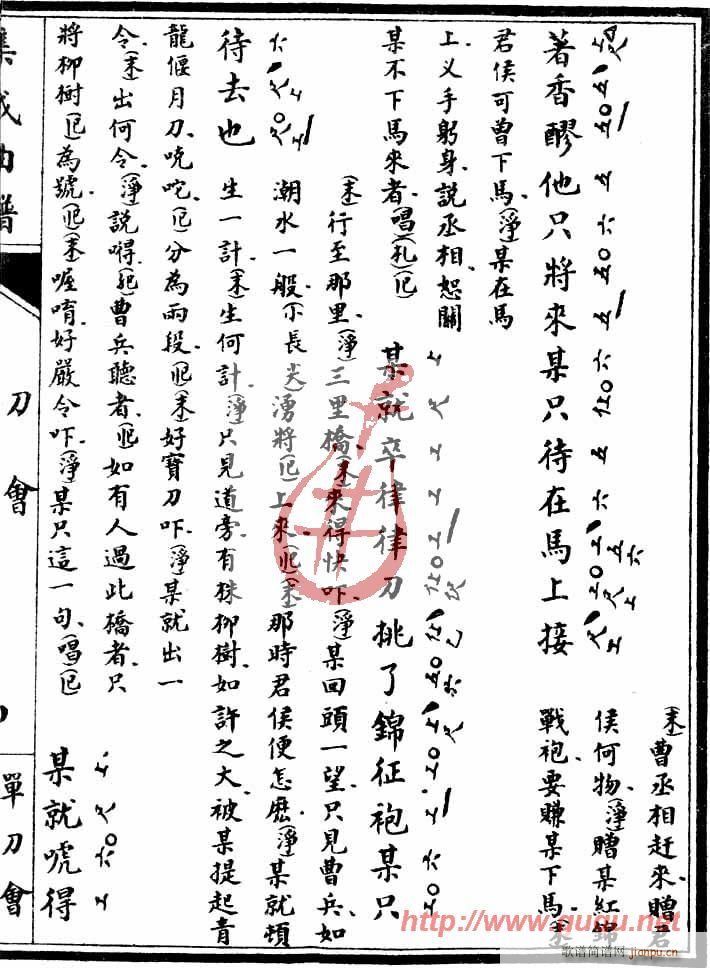 著香醪他只將來某只待在馬上接
(末)曹丞相赶來贈君
侯何物(淨)贈某紅錦
戰袍要賺某下馬(末)
君侯可曾下馬(淨)某在馬
上义手躬身説丞相恕關
某不下馬來者(唱)(札)(㔾)
某就卒律律刀挑了錦征袍某只
(末)行至那里(淨)三里橋(末)來得快吓(淨)某回頭一望只見曹兵如
潮水一般(不長尖)湧將(㔾)上來(㔾)(末)那時君侯便怎麽(淨)某就頓
待去也
生一計(末)生何計(淨)只見道旁有株柳樹如許之大被某提起青
龍偃月刀吭咜(㔾)分為兩段(㔾)(末)好寶刀吓(淨)某就出一
令(末)出何令(淨)説嘚(㔾)曹兵聽者(㔾)如有人過此橋者只
將柳樹(㔾)為號(㔾)(末)喔唷好嚴令吓(淨)某只這一句(唱)(㔾)
某就唬得
集成曲譜
刀會
單刀會
http://www.ququ.net
歌谱简谱网
jianpu.cn